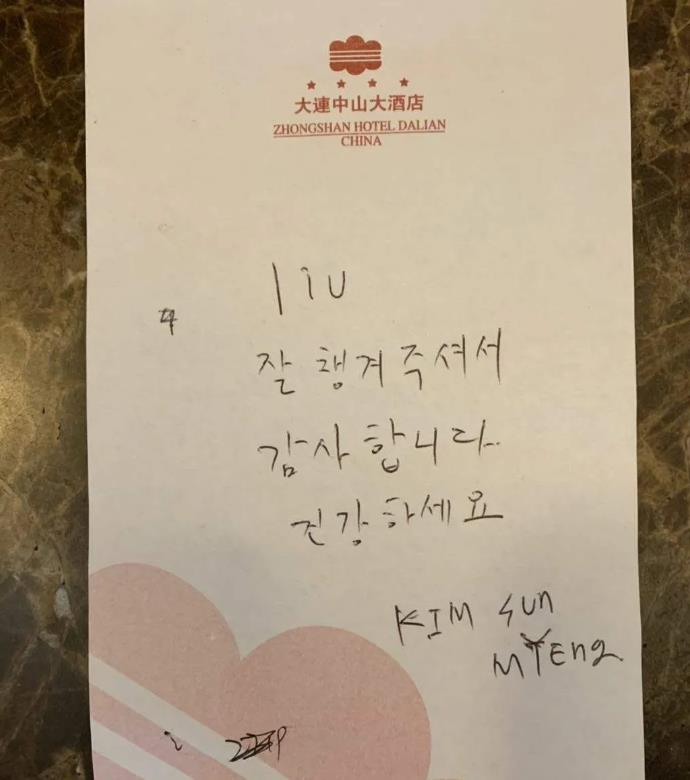 大連中山大酒店
ZHONGSHAN HOTEL DALIAN
CHINA
liu
잘 챙겨주셔서
감사합니다.
건강하세요
KIM SUN
MYEng